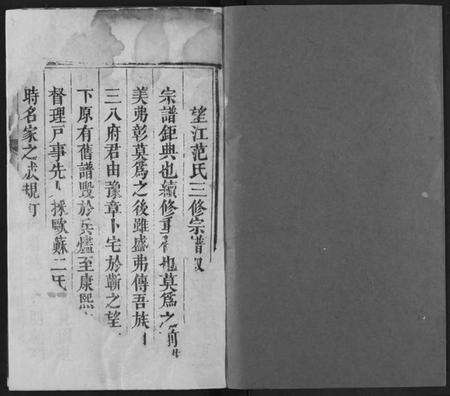 望江范氏三修宗譜叙
宗譜鉅典也續修重也莫為之前
美弗彰莫為之後雖盛弗傳吾族
三八府君由豫章卜宅於蘄之望
下原有舊譜毀於兵燹至康熙
督理戸事先採歐蘇二氏
時名家之成規訂